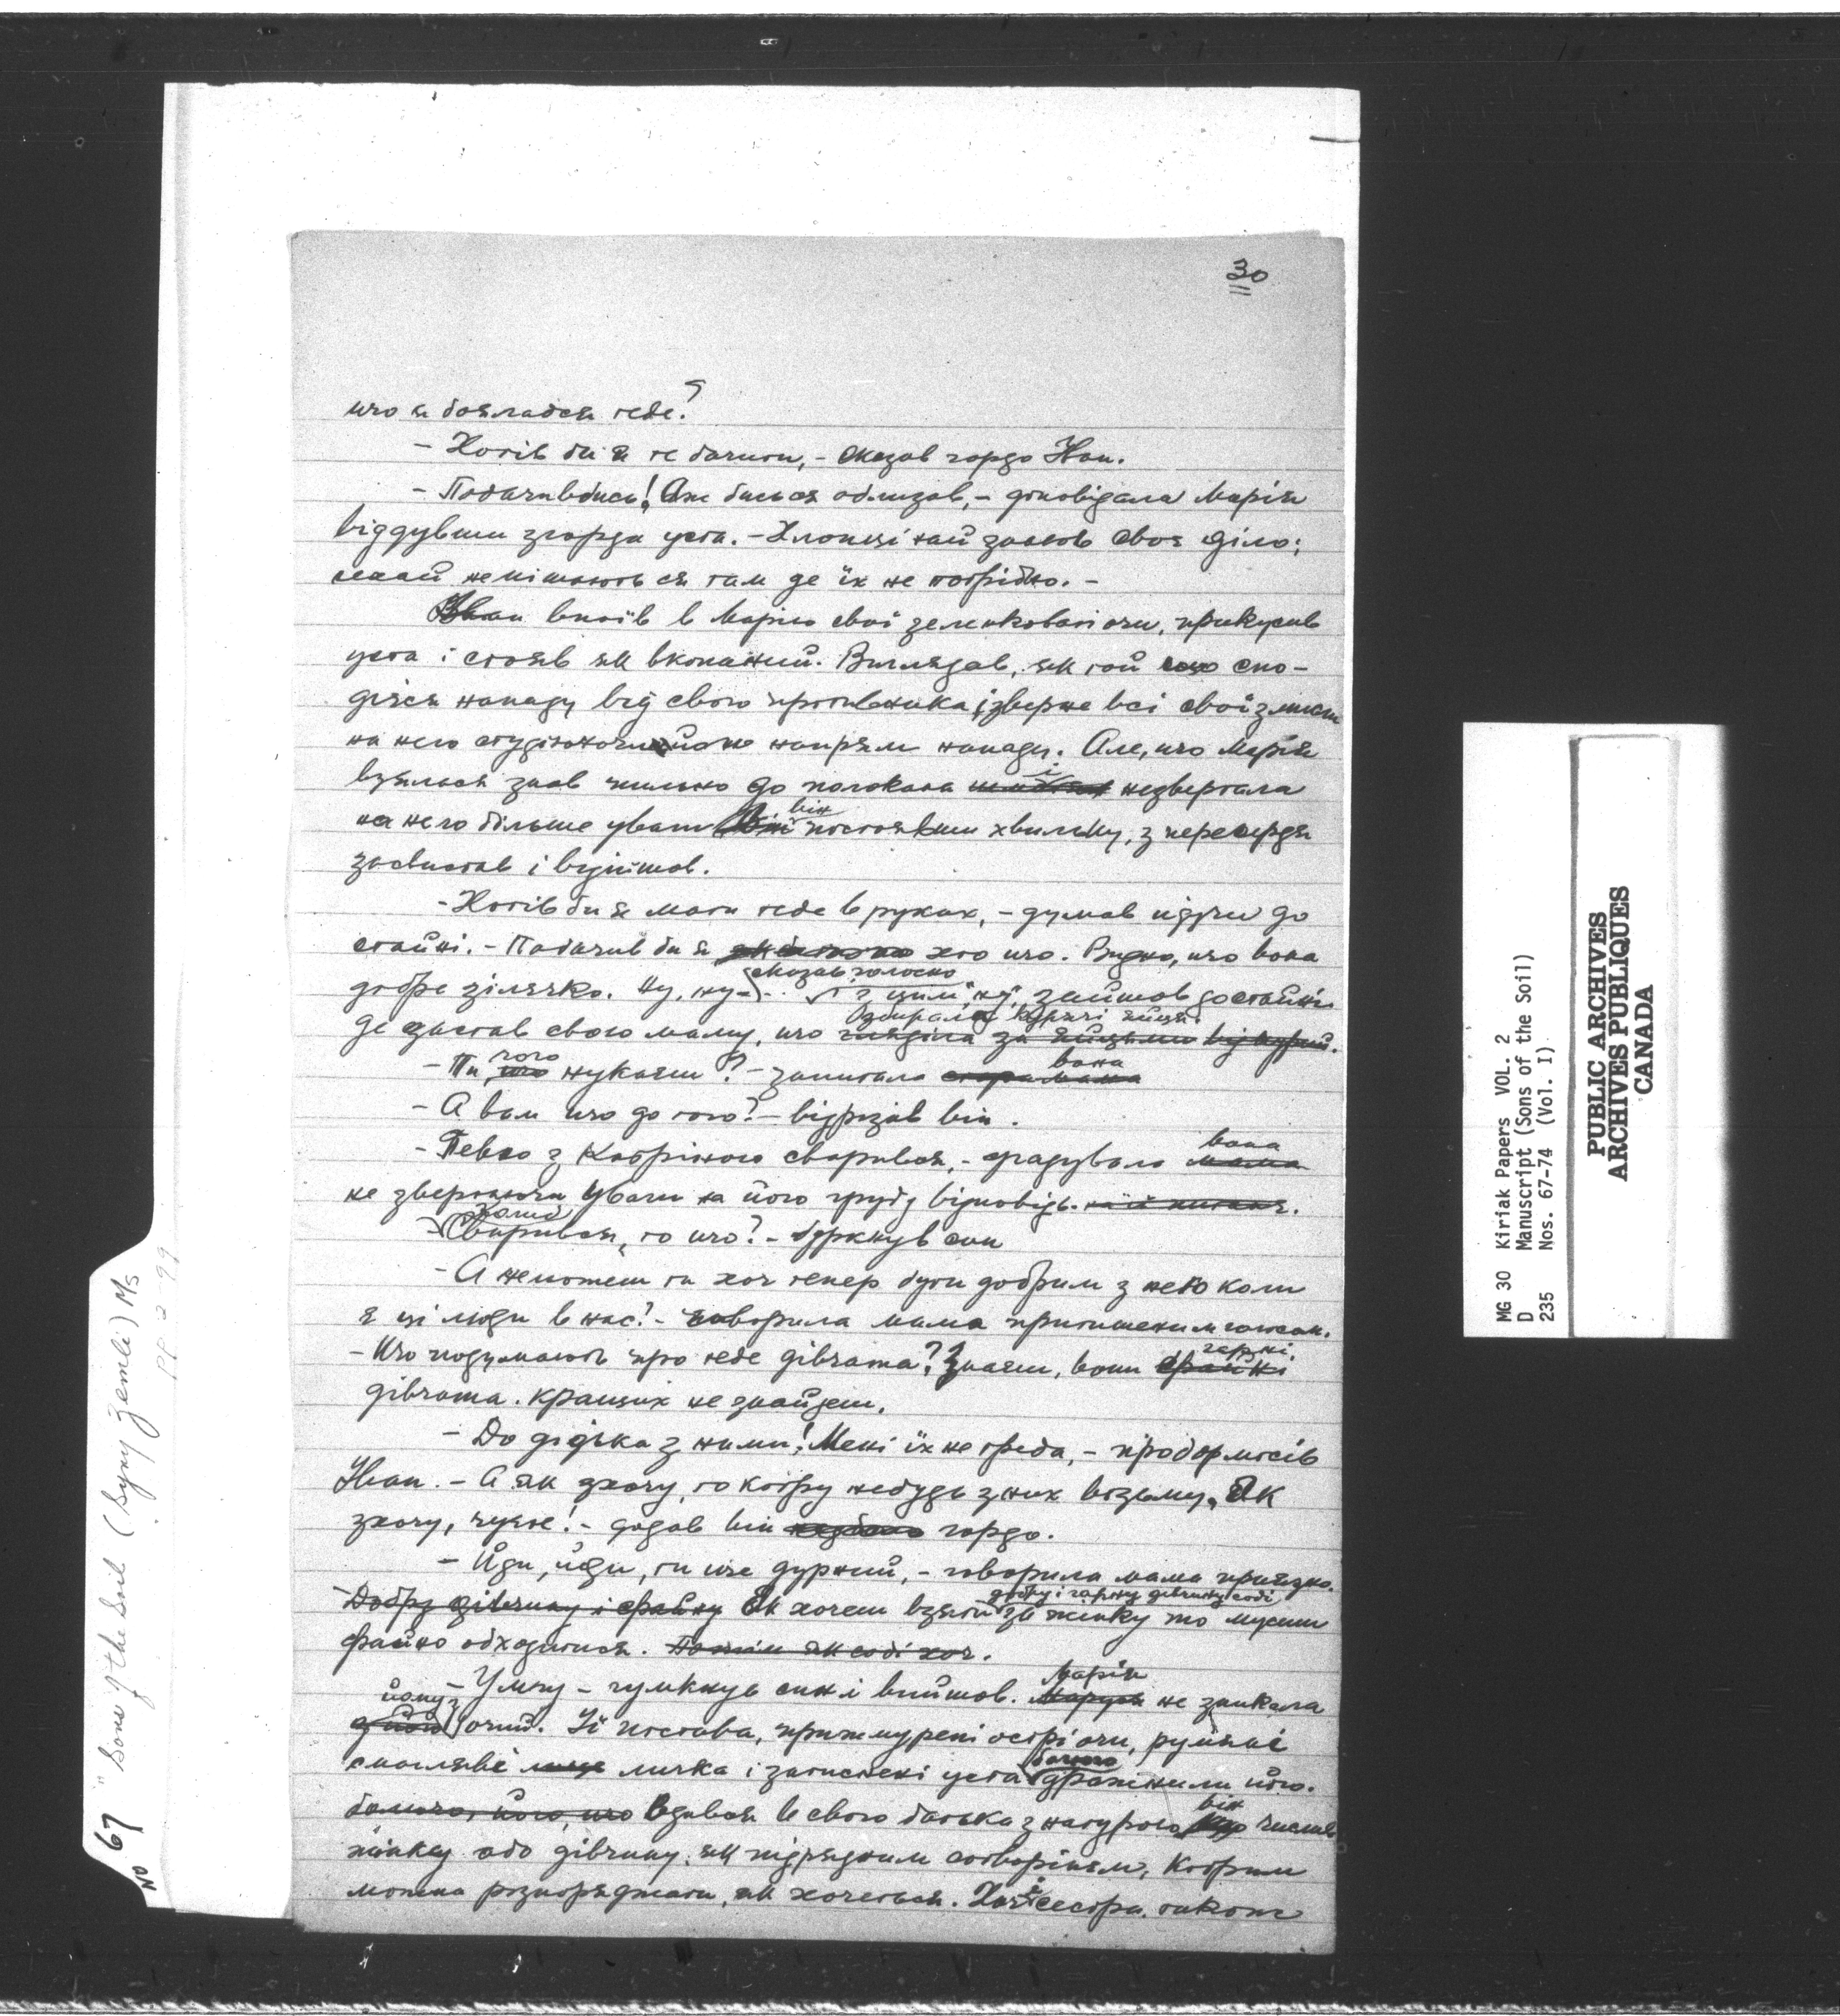 30
що я боялабся тебе?
- Хотів би я те бачити, - сказав гордо Іван.
- Побачивбись! Аж бись ся облизав, - доповідала Марія
віддувши згорда уста. - Хлопці най знають своє діло;
нехай не мішаються там де їх не потрібно. -
Іван впоїв в Марію свої зеленковаті очи, прикусив
уста і стояв як вкопаний. Виглядав, як той що спо-
дієся нападу від свого противника і зверне всі свої змисли
на него напрям нападу. Але, що Марія
взялася знов пильно до полокана і незвертала
на него більше уваги він постоявши хвильку, з пересердя
засвистав і вийшов.
- Хотів би я мати тебе в руках, - думав ідучи до
стайні. - Побачив би я хто що. Видно, що вона
добре зілячко. Ну, ну - сказав голосно і з цим "ну" зайшов до стайні
де застав свого маму, що збирала курячі яйця.
- Ти чого шукаєш? - запитала вона
- А вам що до того? - відрізав він.
- Певно з Катріною сварився, - фрадувала вона
не звертаючи уваги на його грубу відповідь.
- Сварився, то що? - буркнув син
- А неможеш ти хоч тепер бути добрим з нею коли
є ці люди в нас? - говорила мама притишеним голосом.
- Що подумають про тебе дівчата? Знаєш, вони гарні
дівчата. Кращих не знайдеш.
- До дідька з ними! Мені їх не треба, - пробормосів
Іван. - А як зхочу, то котру небудь з них візьму. Як
зхочу, чуєте! - додав він гордо.
- Йди, йди, ти ще дурний, - говорила мама приязно.
- Добру дівчину і файну Як хочеш взяти добру і гарну дівчину собі за жінку то мусиш
файно обходитися. Потім як собі хоч.
- Умгу - гумкнув син і вийшов. Марія не зникала
йому з очий. Її постава, прижмурені острі очи, румяні
смагляві личка і затиснені уста дразнили його.
Вдався в свого батька з натурою він числив
жінку або дівчину, як підрядним сотворіням, котрим
можна розпоряджати, як хочеться. Хоч і сестра також
No 67 "Sons of the Soil (Syny Zemli) Ms
pp 2-99
MG 30 Kiriak Papers VOL. 2
D Manuscript (Sons of the Soil)
235 Nos. 67-74 (Vol. I)
PUBLIC ARCHIVES
ARCHIVES PUBLIQUES
CANADA